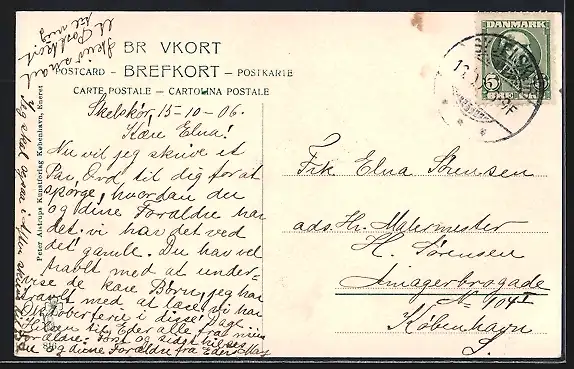 BR VKORT
POSTCARD – BREFKORT – POSTKARTE
CARTE POSTALE – CARTOLINA POSTALE
DANMARK
5
Skelskør, 15-10-06.
Kære Elna!
Nu vil jeg skrive et
Par Ord til dig for at
spørge, hvordan du
og dine Forældre har
det. vi har det ved
det gamle. Du har vel
travlt med at under-
vise de kære Børn, jeg har
travlt med at læse, vi har
Oktoberferie i disse Dage.
Hilsen til Eder alle fra mine
Forældre. Først og sidst hilses
Du og dine Forældre fra Eders
Skriv snart
et Postkort
til mig
Jeg skal ogsaa
Peter Alstrups Kunstforlag København, Eneret
Frk Elna Sørensen
ads. Hr. Malermester
H. Sørensen
Amagerbrogade
No 104 I
København
S.